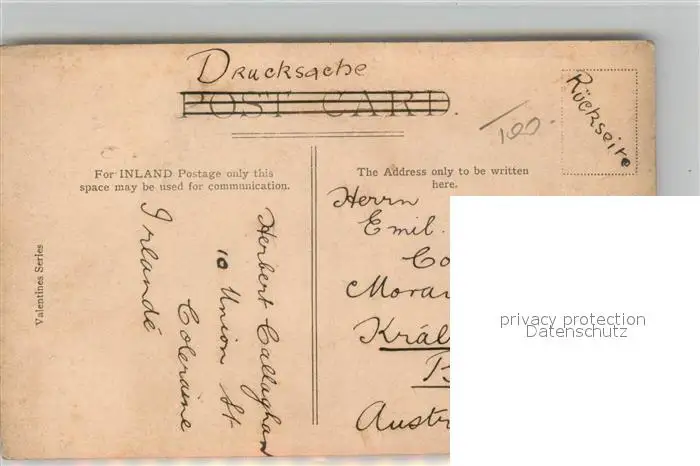 Drucksache
POST CARD.
/100.
Rückseite
For INLAND Postage only this
space may be used for communication.
The Address only to be written
here.
Herrn
Emil.
Co
Morav
Král
B
Austr
Herbert Callaghan
10 Union St
Coleraine
Irlandé
Valentines Series
privacy protection
Datenschutz